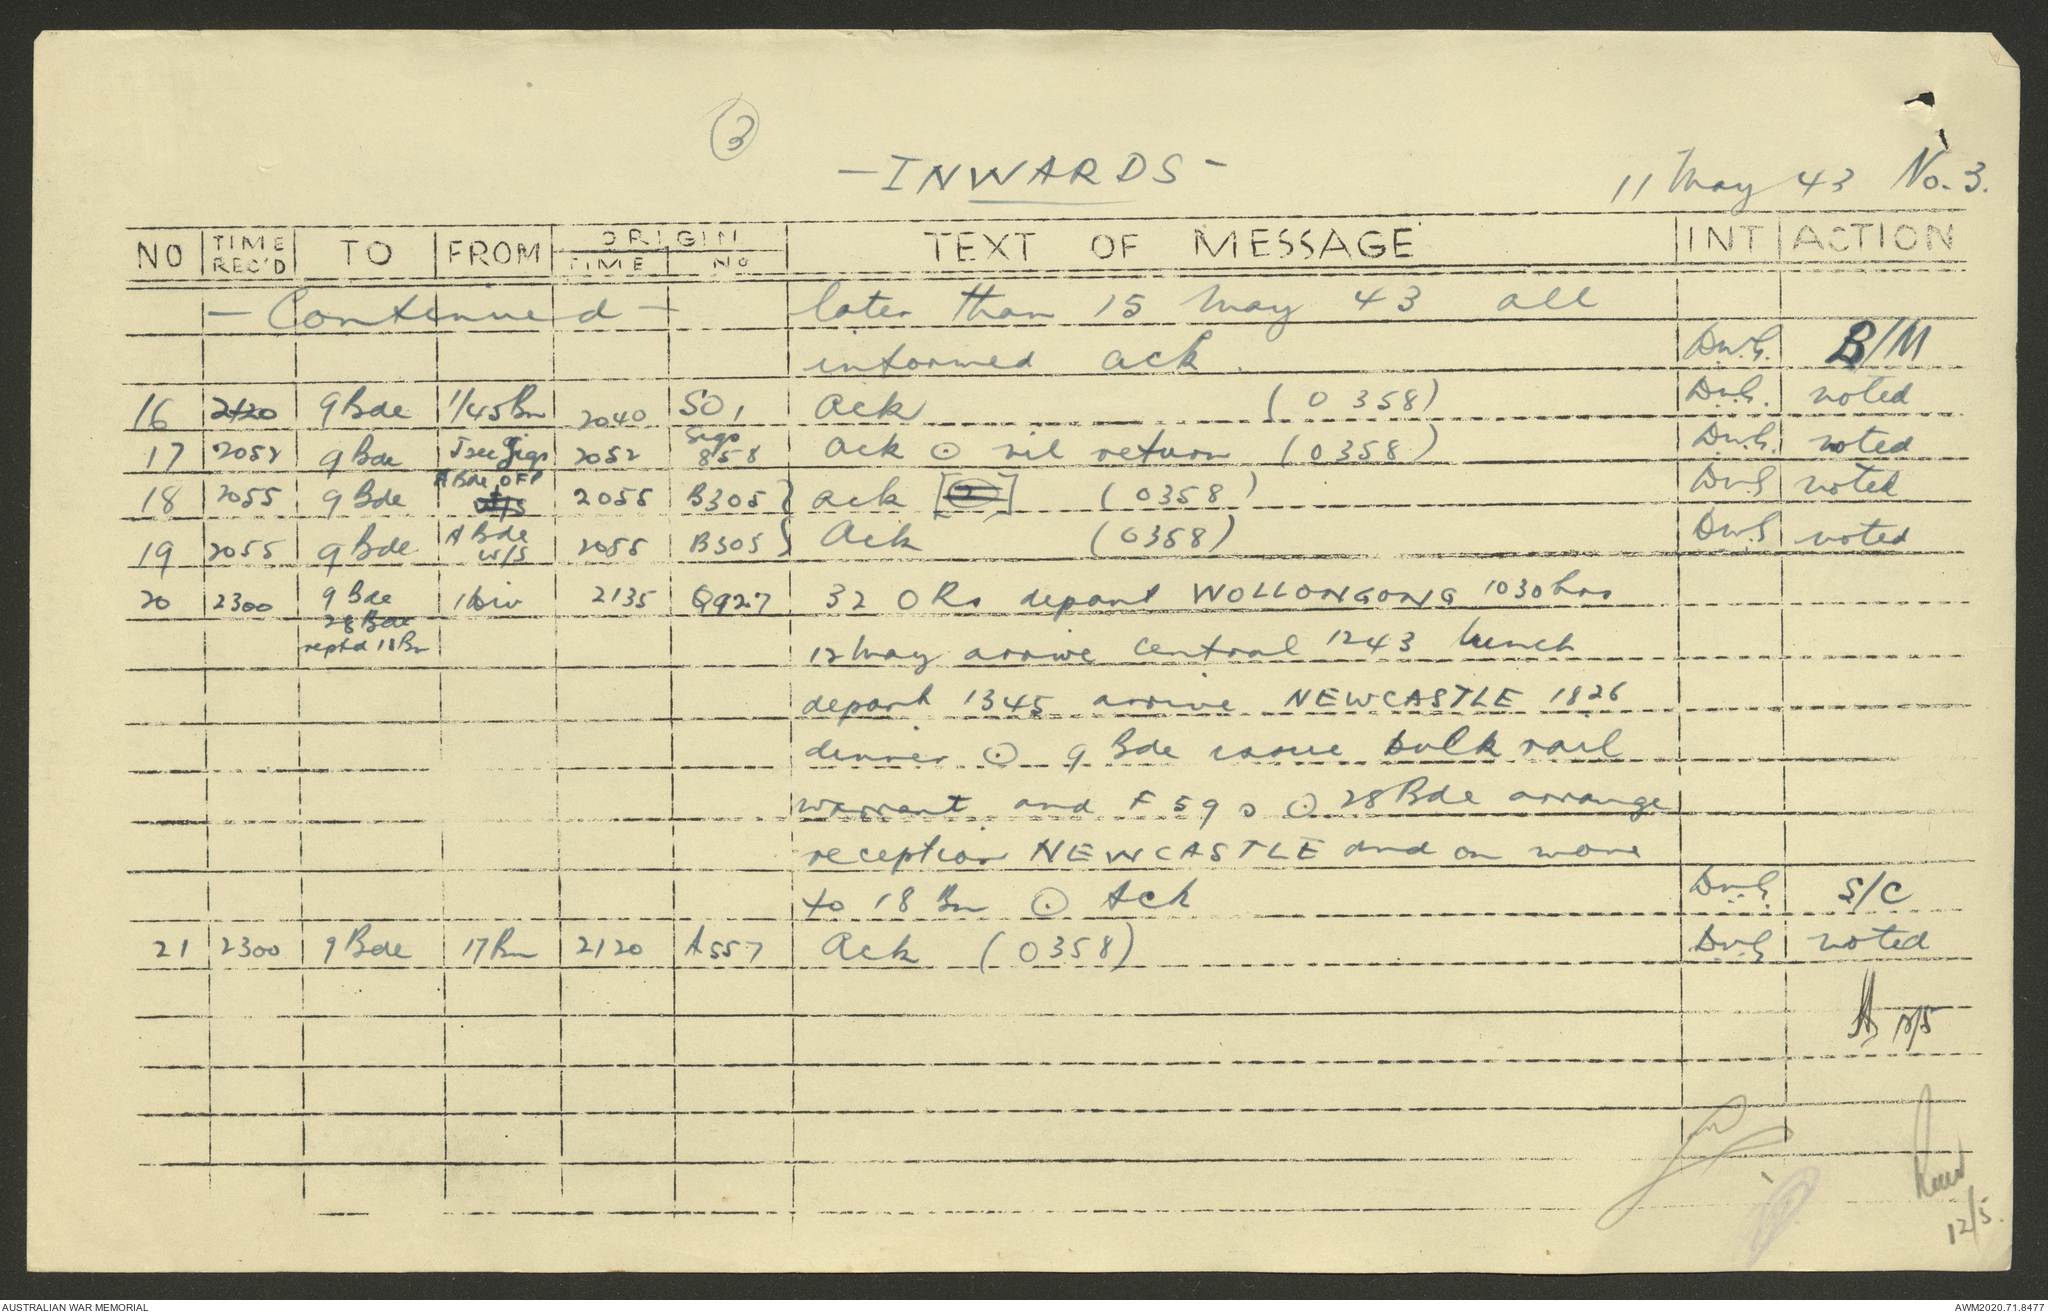 3
- INWARDS -
11 May 43 No. 3.
NO TIME REC'D TO FROM ORIGIN TIME No TEXT OF MESSAGE INT ACTION
- Continued - later than 15 May 43 all
informed ack. D.W.G. B/M
16 2120 9 Bde 1/45 Bn 2040 SO1 ack (0358) D.W.G. noted
17 2052 9 Bde Sigs 2052 Sigs 858 ack ⊙ nil return (0358) D.W.G. noted
18 2055 9 Bde A Bde OFP 2055 B305 ack (0358) DWG noted
19 2055 9 Bde A Bde W/S 2055 B305 Ack (0358) DWG noted
20 2300 9 Bde 1 Div 2135 Q927 32 ORs depart WOLLONGONG 1030 hrs
28 Bde
reptd 18 Bn 12 May arrive Central 1243 lunch
depart 1345 arrive NEWCASTLE 1826
dinner ⊙ 9 Bde issue bulk rail
warrant and F59s ⊙ 28 Bde arrange
reception NEWCASTLE and on move
to 18 Bn ⊙ Ack DWG S/C
21 2300 9 Bde 17 Bn 2120 A557 Ack (0358) DWG noted
12/5
12/5.
AUSTRALIAN WAR MEMORIAL
AWM2020.71.8477